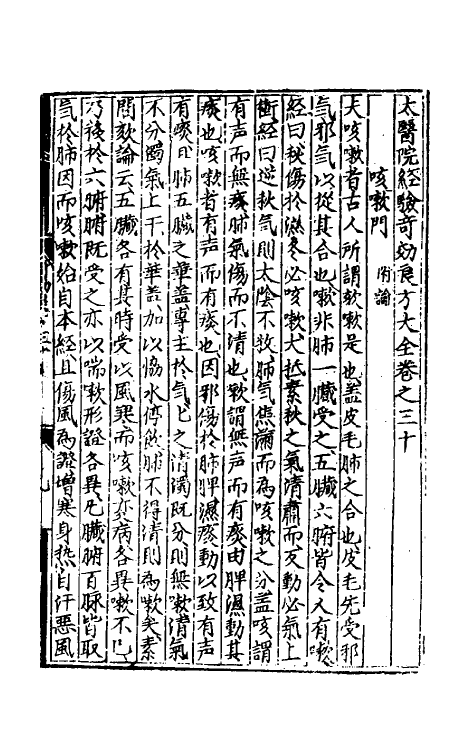 太醫院經驗奇効良方大全卷之三十
咳嗽門 附論
夫咳嗽者古人所謂欬嗽是也盖皮毛肺之合也皮毛先受邪
氣邪气以從其合也嗽非肺一臟受之五臟六腑皆令人有嗽
經曰秋傷於濕冬必咳嗽大抵素秋之氣清肅而反動必气上
衝經曰逆秋气則太陰不收肺气焦滿而為咳嗽之分盖咳謂
有声而無痰肺氣傷而不清也嗽謂無声而有痰由脾濕動其
痰也咳嗽者有声而有痰也因邪傷於肺脾濕痰動以致有声
有痰且肺五臟之華盖專主於气匕之清濁既分則無嗽清氣
不分濁氣上干於華盖加以恊水停飲肺不得清則為嗽矣素
問欬論云五臟各有其時受以風寒而咳嗽亦病各異嗽不已
乃移於六腑腑既受之亦以喘嗽形證各異凡臟腑百脉皆取
气於肺因而咳嗽始自本經且傷風為證增寒身热自汗惡風